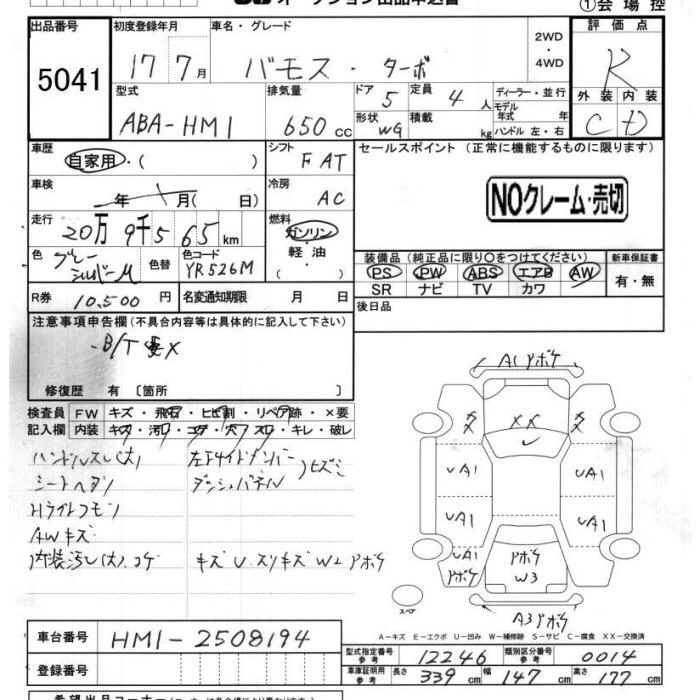 ①会場控
出品番号 初度登録年月 車名・グレード 2WD ・ 4WD 評価点
5041 17 7月 バモス・ターボ R
型式 排気量 ドア 定員 ディーラー・並行 外装 内装
ABA-HM1 650cc 5 4人 モデル年式 年 C D
形状 WG 積載 kg ハンドル 左・右
車歴 自家用・( ) シフト FAT セールスポイント (正常に機能するものに限ります)
車検 年 月(日) 冷房 AC NOクレーム・売切
走行 20万9千565km 燃料 ガソリン・軽油・( )
色 グレー シルバーM 色替 色コード YR526M
装備品 (純正品に限り○をつけてください) 新車保証書
PS PW ABS エアB AW 有・無
SR ナビ TV カワ
R券 10,500円 名変通知期限 月 日 後日品
注意事項申告欄 (不具合内容等は具体的に記入して下さい)
修復歴 有 〔箇所 〕
検査員 FW キズ・飛石・ヒビ割・リペア跡・×要
記入欄 内装 キズ・汚れ・コゲ・穴・スレ・キレ・破レ
ハンドルスレ(大) 左F サイドメンバー
シートヘタリ ダッシュパネル ヒズミ
Hライトクモリ
AWキズ
内装汚レ(大)、コゲ キズ U スリキズ W2 アボケ
A1アボケ
XX
UA1 UA1
UA1 UA1
UA1 アボケ アボケ W3
スペア
A3アボケ
A-キズ E-エクボ U-凹み W-補修跡 S-サビ C-腐食 XX-交換済
車台番号 HM1-2508194
登録番号
型式指定番号 参考 12246 類別区分番号 参考 0014
車庫証明用 参考 長さ 339cm 幅 147cm 高さ 177cm